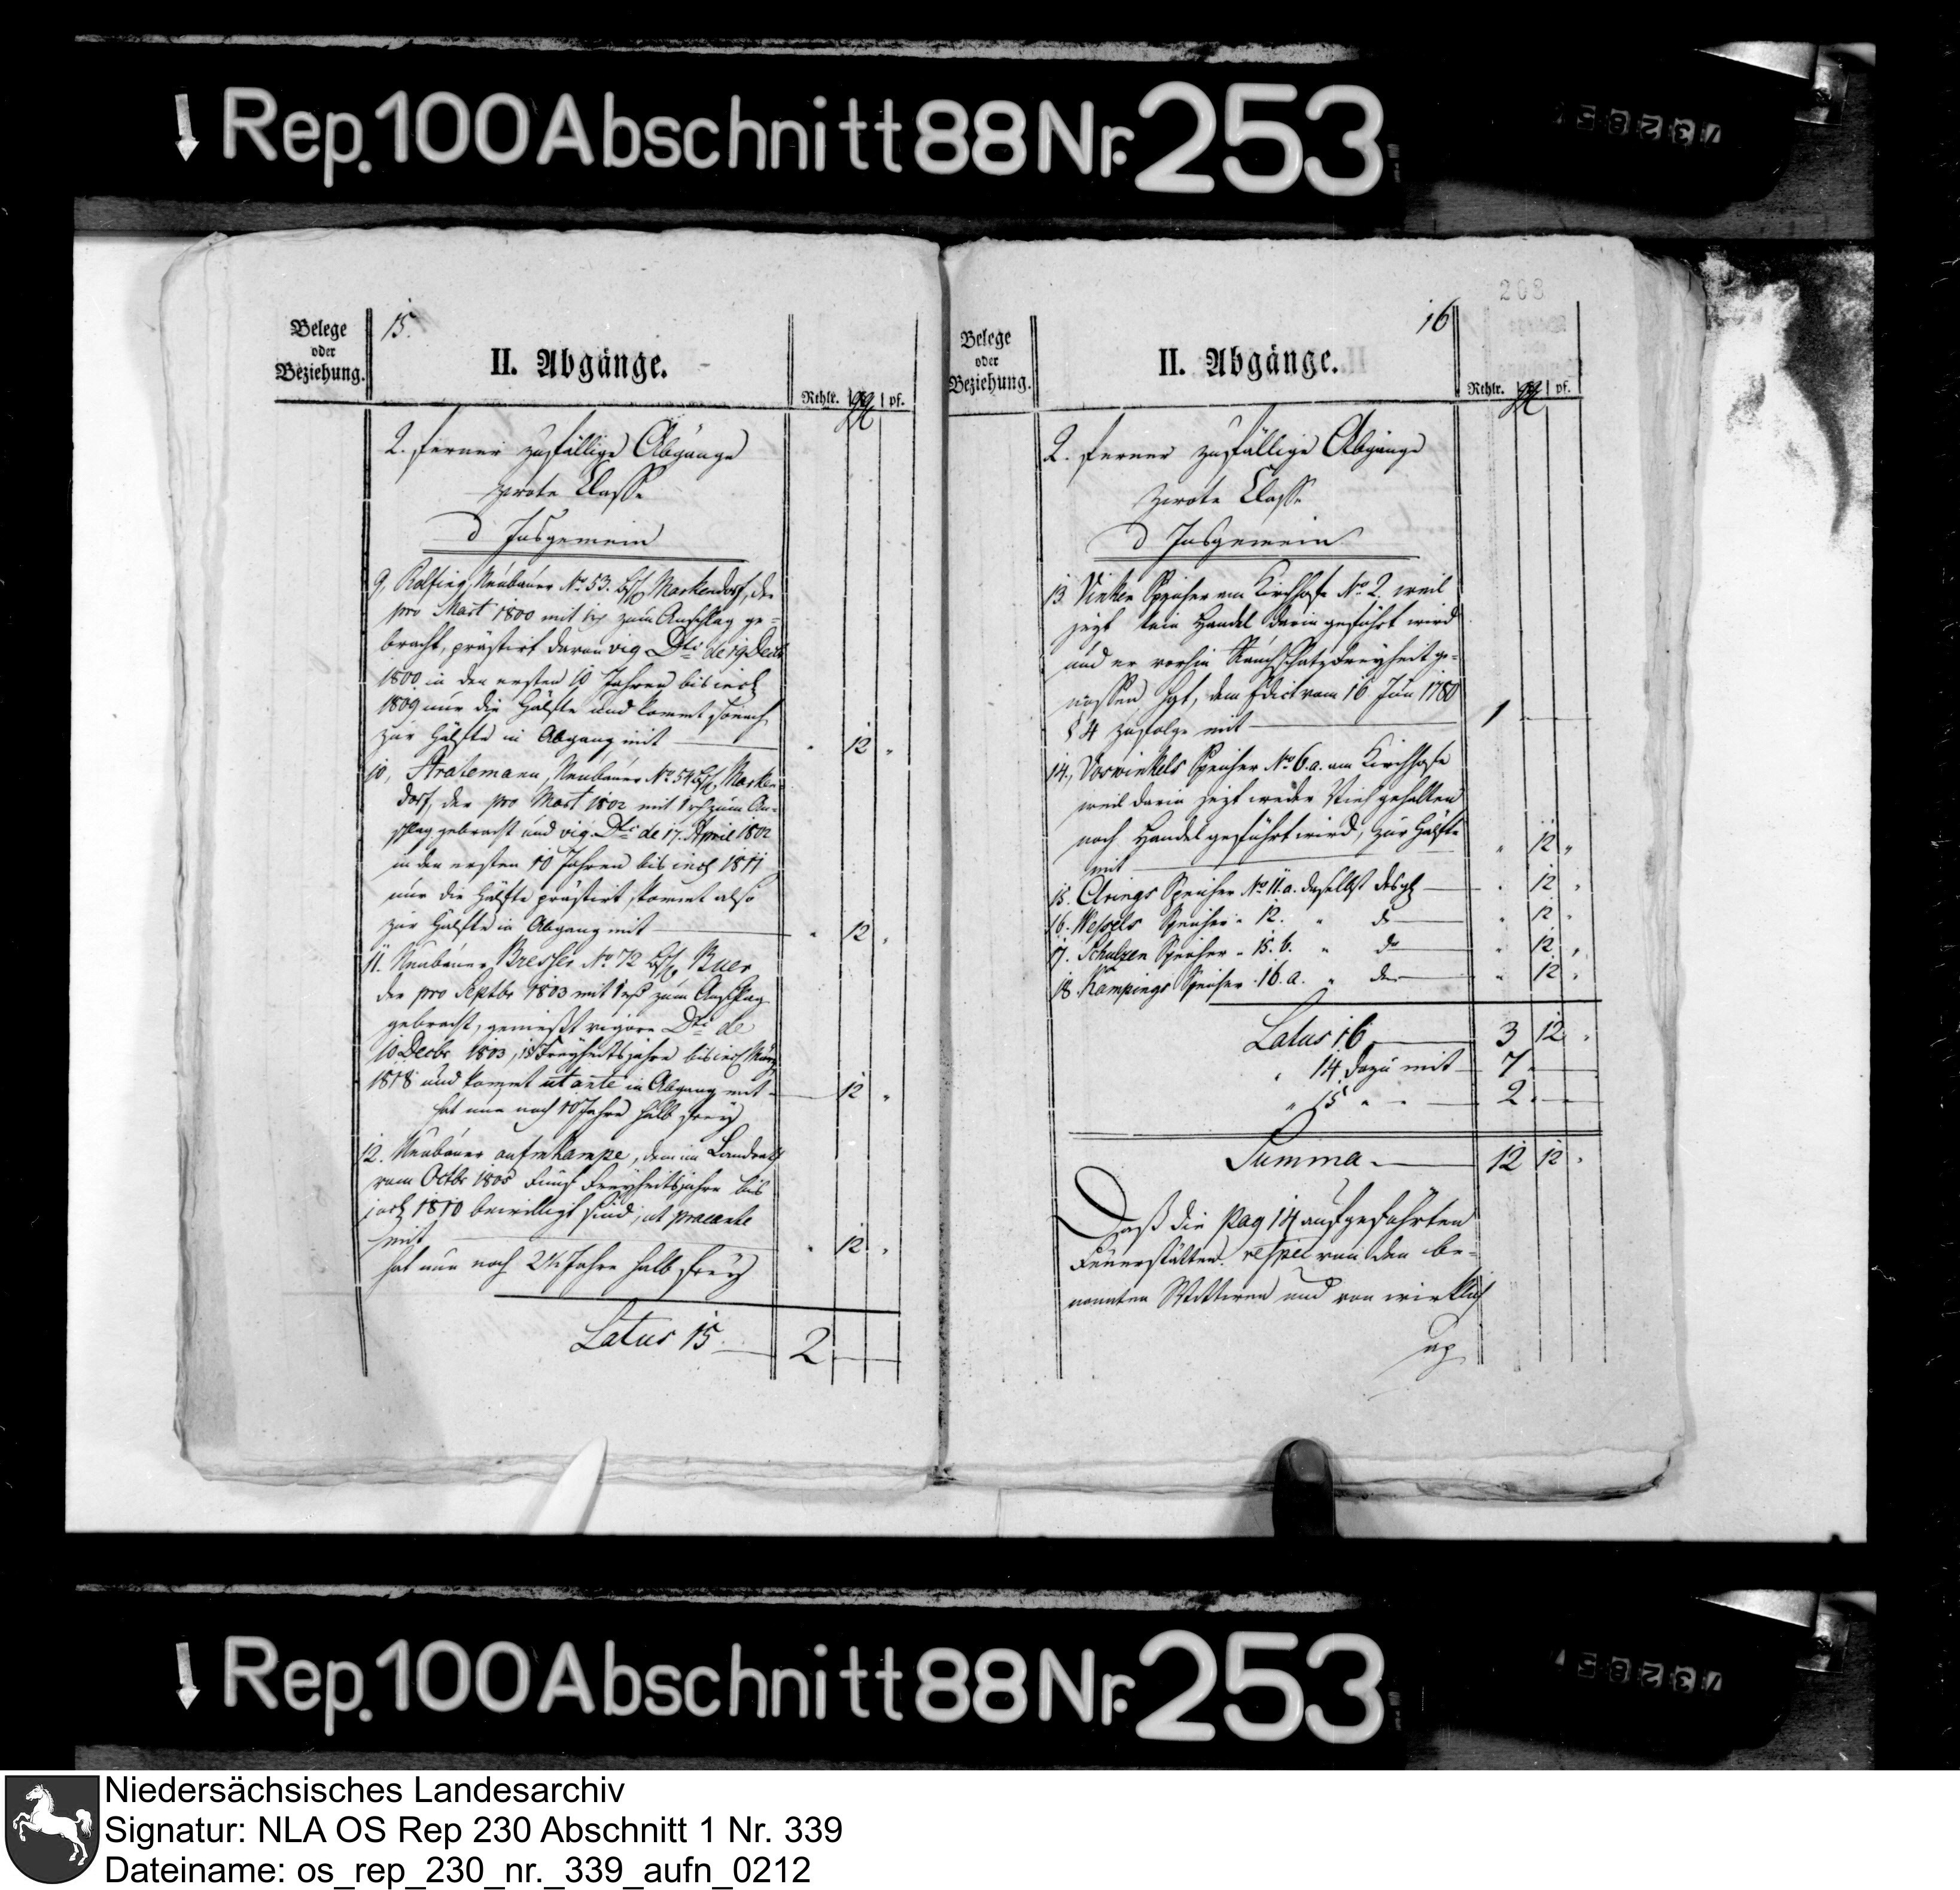 Rep. 100 Abschnitt 88 Nr. 253
Belege
oder
Beziehung.
15.
II. Abgänge.
Rthlr. ggl pf.
2. ferner zufällige Abgänge
zwote Classe
d Insgemein
9, Rolfing, Neubauer No. 53. Bsch. Markendorf, der
pro Mart 1800 mit 1 rthl zum Anschlag ge-
bracht, prästirt davon vig. Dti de 19 Decbr
1800 in den ersten 10 Jahren bis incl
1809 nur die Hälfte und kommt sonach
zur Hälfte in Abgang mit — " 12 "
10, Stratemann, Neubauer No. 54 Bsch. Marken-
dorf, der pro Mart 1802 mit 1 rthl zum An-
schlag gebracht und vig. Dti de 17. April 1802
in den ersten 10 Jahren bis incl 1811
nur die Hälfte prästirt, kommt also
zur Hälfte in Abgang mit — " 12 "
11. Neubauer Bresser No. 72 Bsch. Buer
der pro Septbr 1803 mit 1 rthl zum Anschlag
gebracht, genießt vigore Dti de
10 Decbr 1803, 15 Freyheitsjahre bis incl März
1818 und kommt ut ante in Abgang mit — 12 "
hat nun noch 10 Jahre halb frey
12. Neubauer aufm Kampe, dem im Landrath
vom Octbr 1805 Fünf Freyheitsjahre bis
incl 1810 bewilligt sind, ut praeante
mit — " 12 "
hat nun noch 2½ Jahre halb frey
Latus 15 — 2 — —
208
Belege
oder
Beziehung.
16
II. Abgänge.
Rthlr. ggl pf.
2. ferner zufällige Abgänge
zwote Classe
d Insgemein
13. Vinken Speicher am Kirchhofe No. 2. weil
jezt kein Handel darin geführt wird
und er vorhin Rauchschatzfreyheit ge-
nossen hat, dem Edict vom 16 Jun 1780
§ 4 zufolge mit — 1 — —
14., Voswinkels Speicher No. 6. a. am Kirchhofe
weil darin jezt weder Vieh gehalten
noch Handel geführt wird, zur Hälfte
mit — " 12 "
15. Clrings Speicher No. 11. a. daselbst desgl — " 12 "
16. Wessels Speicher " 12. " do — " 12 "
17. Schulzen Speicher " 15. b. " do — " 12 "
18. Kampings Speicher " 16. a. " do — " 12 "
Latus 16 — 3 12 "
" 14 dazu mit — 7 — —
" 15 " " — 2 — —
Summa — 12 12 "
Daß die Pag 14 aufgeführten
Feuerstätten respec von den be-
nannten Wittwen und von wirklich
Rep. 100 Abschnitt 88 Nr. 253
Niedersächsisches Landesarchiv
Signatur: NLA OS Rep 230 Abschnitt 1 Nr. 339
Dateiname: os_rep_230_nr._339_aufn_0212